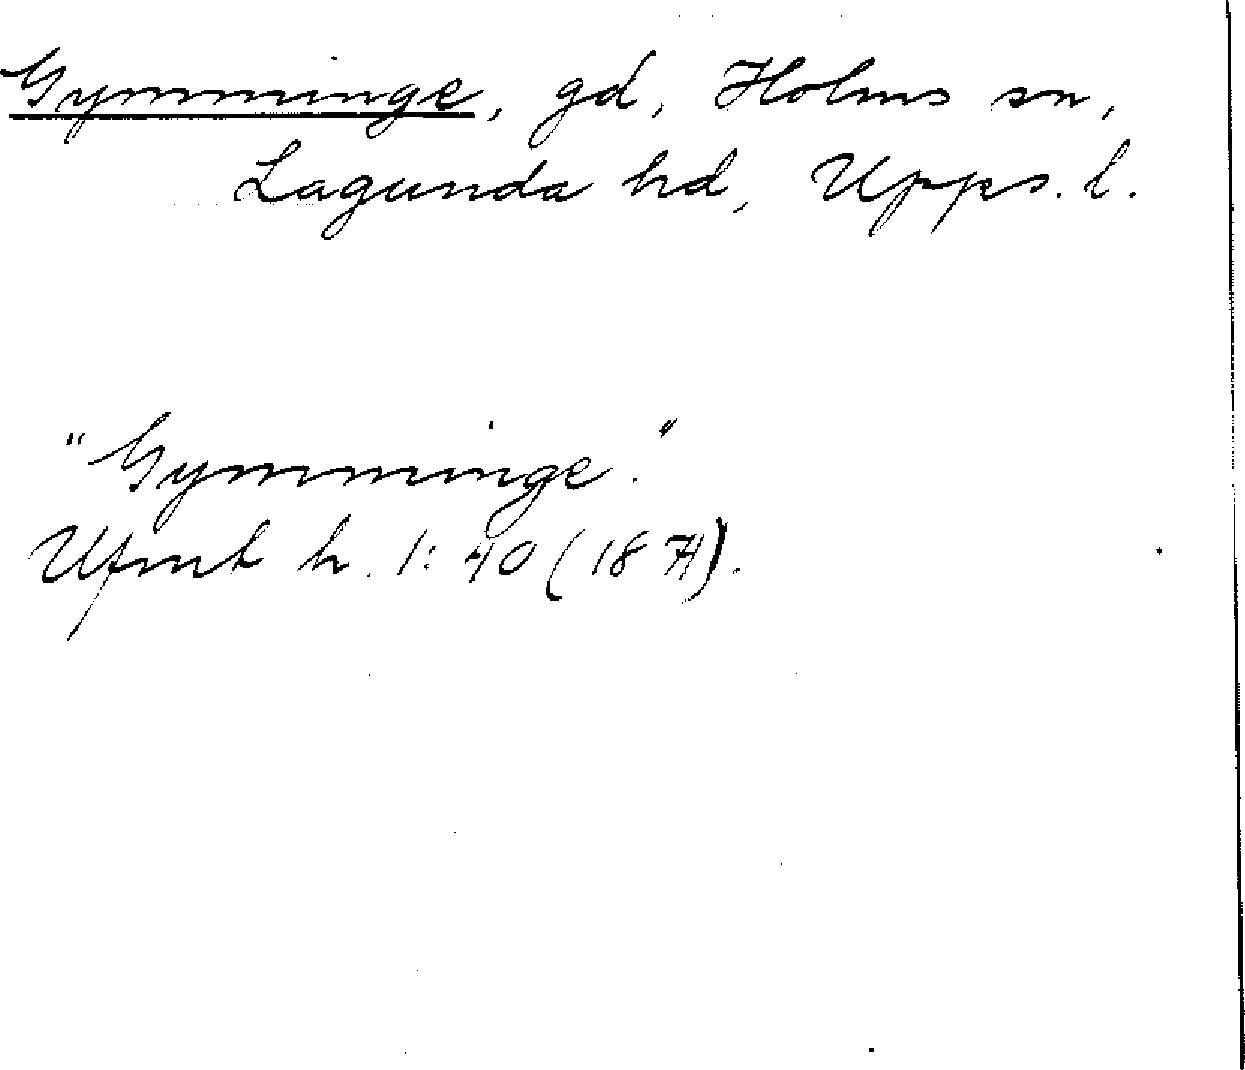 Gymminge, gd, Holms sn,
Lagunda hd, Upps. l.
"Gymminge."
Ufmt h. 1:40 (1871).